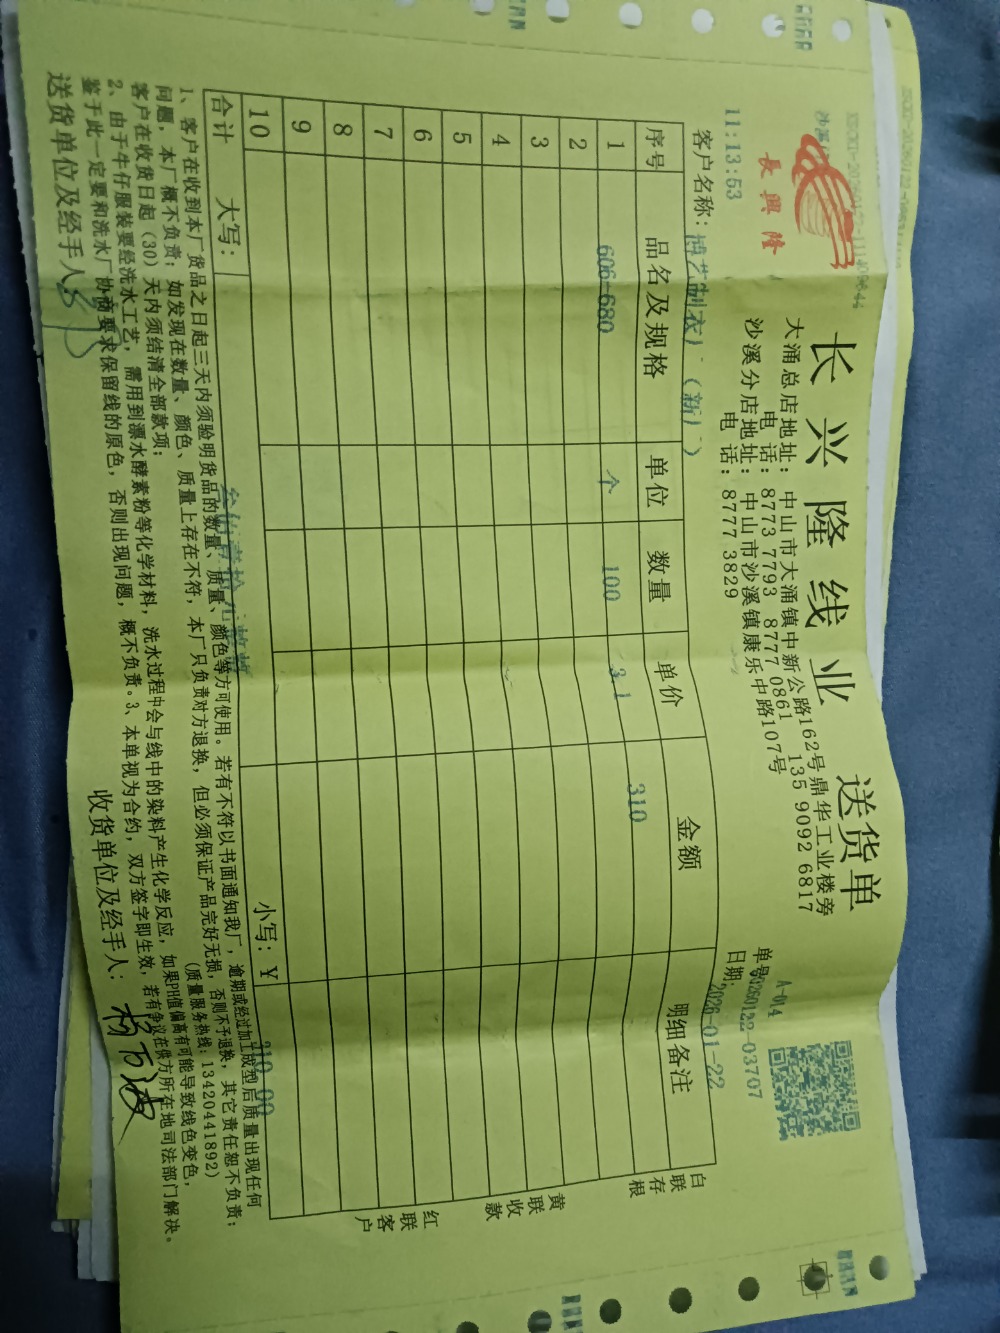 長興隆
长兴隆线业 送货单
大涌总店地址：中山市大涌镇中新公路162号鼎华工业楼旁
电话：8773 7793 8777 0861 135 9092 6817
沙溪分店地址：中山市沙溪镇康乐中路107号
电话：8777 3829
A-014
单号
20260122-03707
11:13:53
日期：2026-01-22
客户名称：博艺制衣厂（新厂）
序号 品名及规格 单位 数量 单价 金额 明细备注
1 606-680 个 100 3.1 310
2
3
4
5
6
7
8
9
10
合计 大写： 叁佰壹拾元整 小写：¥ 310.00
白联存根
黄联收款
红联客户
1、客户在收到本厂货品之日起三天内须验明货品的数量、质量、颜色等方可使用。若有不符以书面通知我厂，逾期或经过加工成型后质量出现任何
问题，本厂概不负责；如发现在数量、颜色、质量上存在不符，本厂只负责对方退换，但必须保证产品完好无损，否则不予退换，其它责任恕不负责；
客户在收货日起（30）天内须结清全部款项； （质量服务热线：13420441892）
2、由于牛仔服装要经洗水工艺，需用到漂水酵素粉等化学材料，洗水过程中会与线中的染料产生化学反应，如果PH值偏高有可能导致线色变色，
鉴于此一定要和洗水厂协商要求保留线的原色，否则出现问题，概不负责。3、本单视为合约，双方签字即生效，若有争议在供方所在地司法部门解决。
送货单位及经手人： 收货单位及经手人：